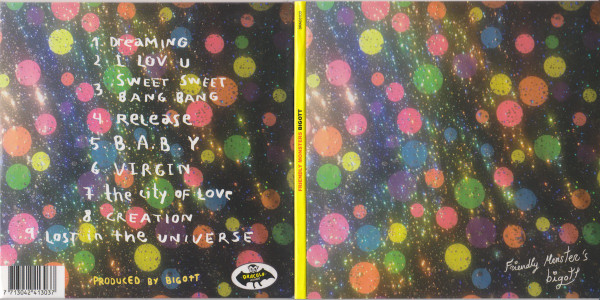 1. Dreaming
2. I LOV U
3. SWEET SWEET
BANG BANG
4. Release
5. B.A.B.Y
6 VIRGIN
7 the city of Love
8 CREATION
9. Lost in the UNIVERSE
PRODUCED BY BIGOTT
DRACULA
7 713042 413037
FRIENDLY MONSTERS BIGOTT
Friendly Monster's
bigott